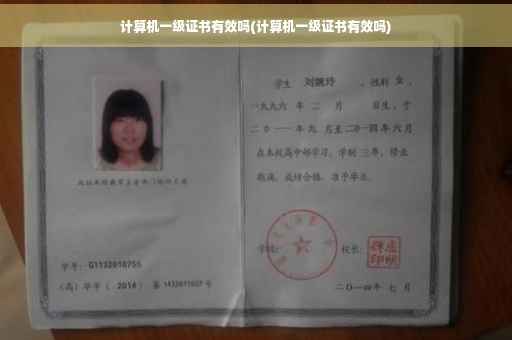 计算机一级证书有效吗(计算机一级证书有效吗)
学生 刘婉玲 ,性别 女 ,
一九九六 年 二 月 日生,于
二〇一一 年 九 月至 二〇一四 年 六 月
在本校高中部学习,学制 三 年,修业
期满,成绩合格,准予毕业。
学号: G1132010755
(高)毕字( 2014 )第 1432011027 号
学校:
校长:
二〇一四年 七 月